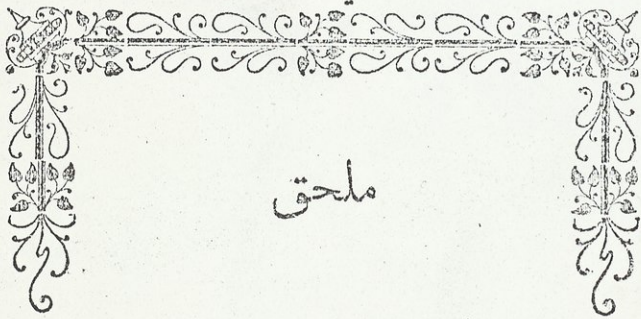 ملحق